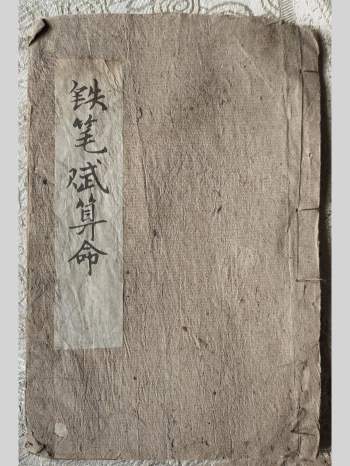 铁笔赋算命